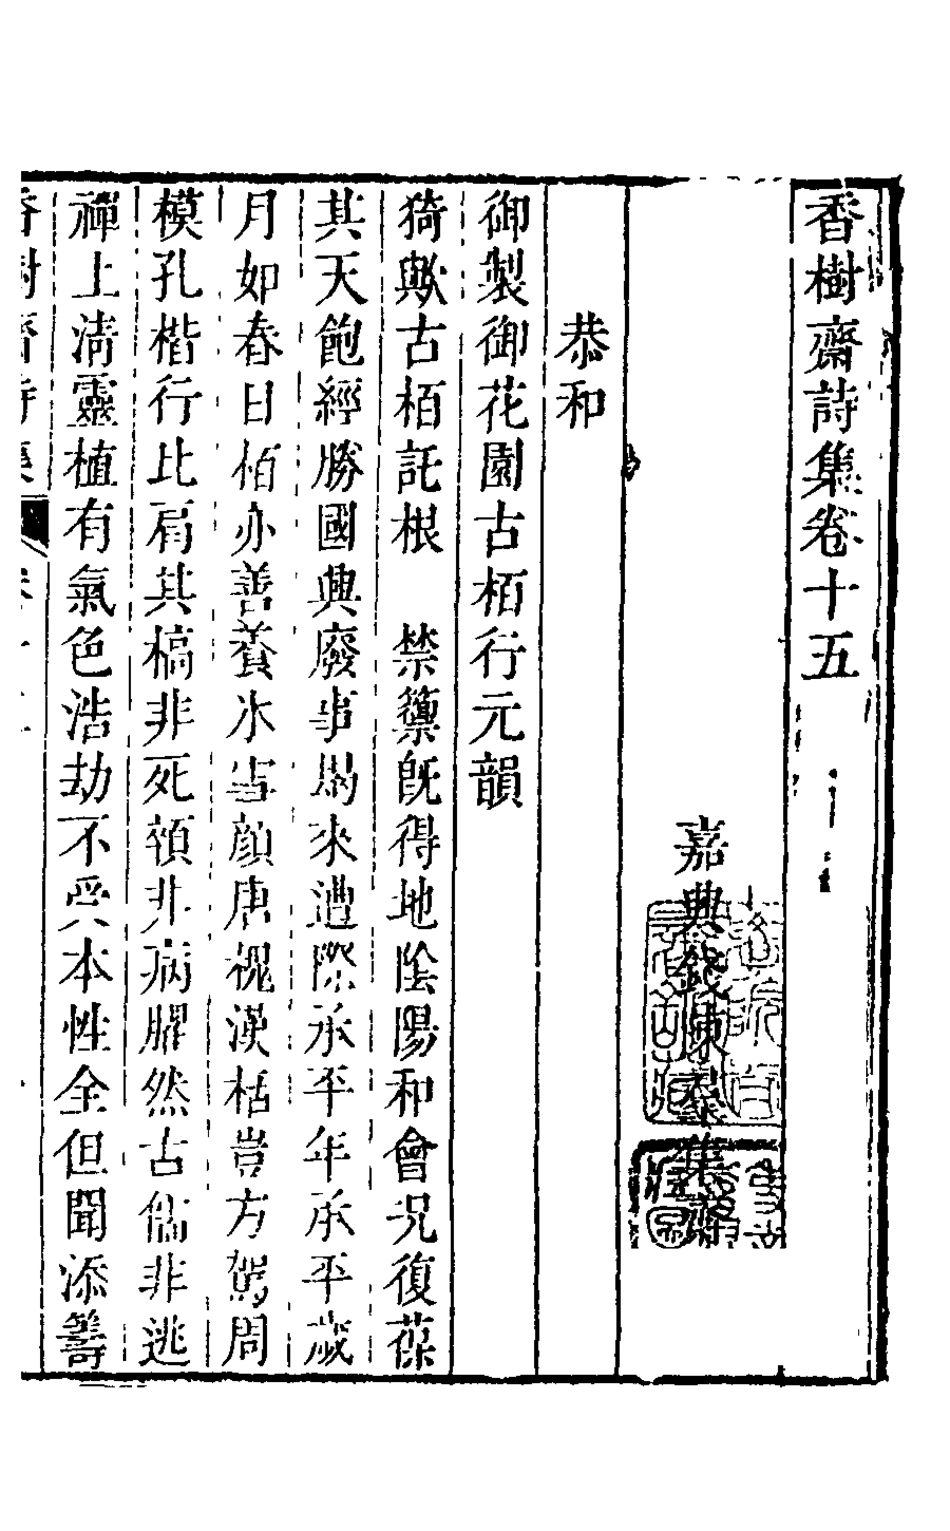 香樹齋詩集卷十五
嘉興錢陳羣集齋
恭和
御製御花園古栢行元韻
猗歟古栢託根　禁籞旣得地陰陽和會况復葆
其天飽經勝國興廢事曷來遭際承平年承平歲
月如春日栢亦善養氷雪顔唐槐漢栝豈方駕周
模孔楷行比肩其槁非死頹非病臞然古儒非逃
禪上淸靈植有氣色浩劫不受本性全但聞添籌
香樹齋詩集　卷十五